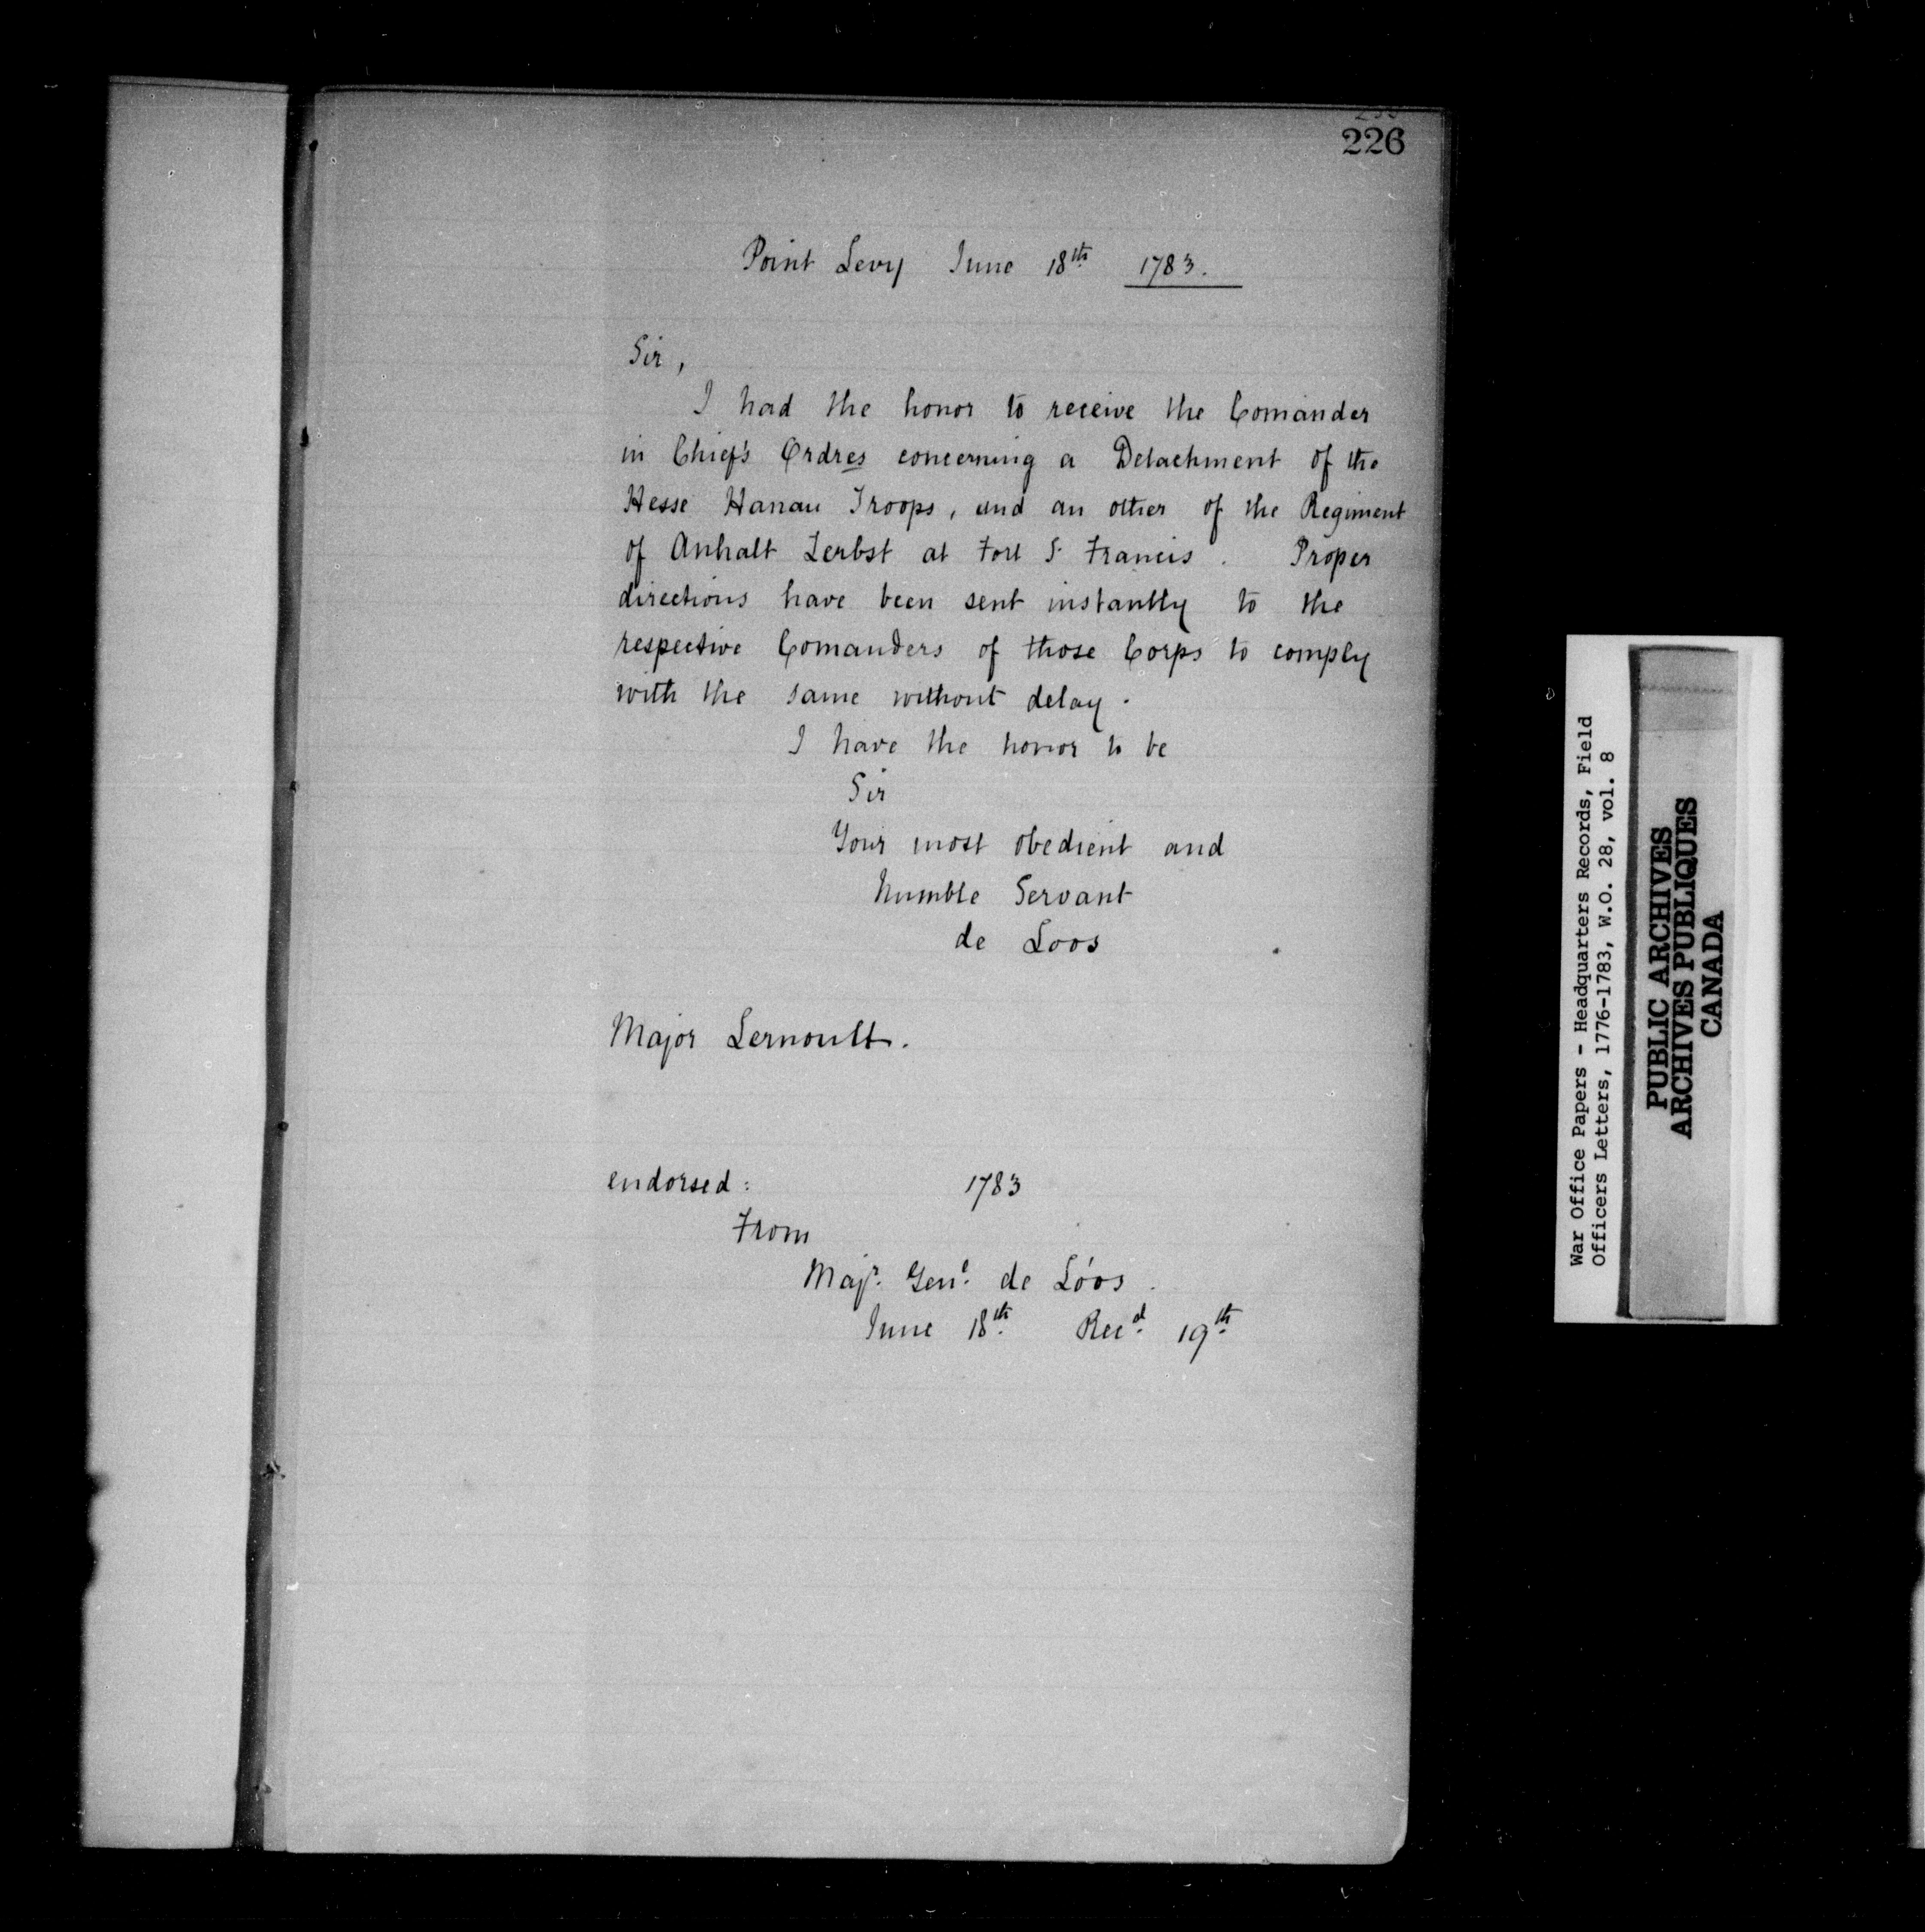 226
Point Levy June 18th 1783.
Sir,
I had the honor to receive the Comander
in Chief's Ordres concerning a Detachment of the
Hesse Hanau Troops, and an other of the Regiment
of Anhalt Zerbst at Fort S. Francis. Proper
directions have been sent instantly to the
respective Comanders of those Corps to comply
with the same without delay.
I have the honor to be
Sir
Your most obedient and
humble Servant
de Loos
Major Lernoult.
endorsed: 1783
From
Majr. Genl. de Lóos.
June 18th. Recd. 19th.
War Office Papers - Headquarters Records, Field
Officers Letters, 1776-1783, W.O. 28, vol. 8
PUBLIC ARCHIVES
ARCHIVES PUBLIQUES
CANADA